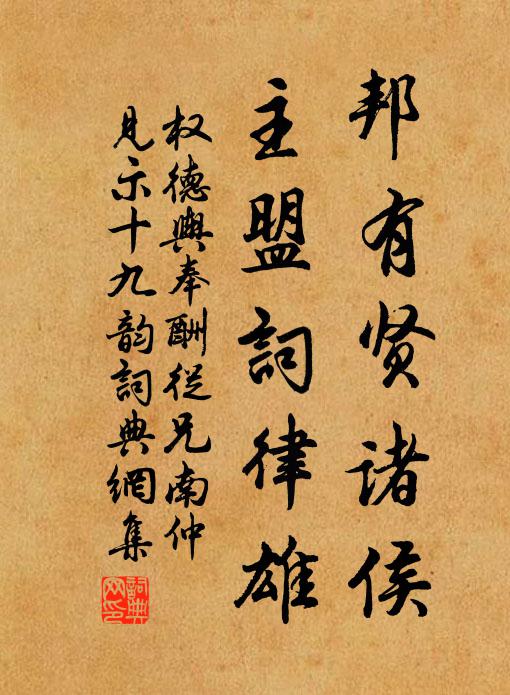 邦有贤诸侯
主盟詞律雄
权德輿奉酬従兄南仲
見示十九韵詞典網集
詞典网印